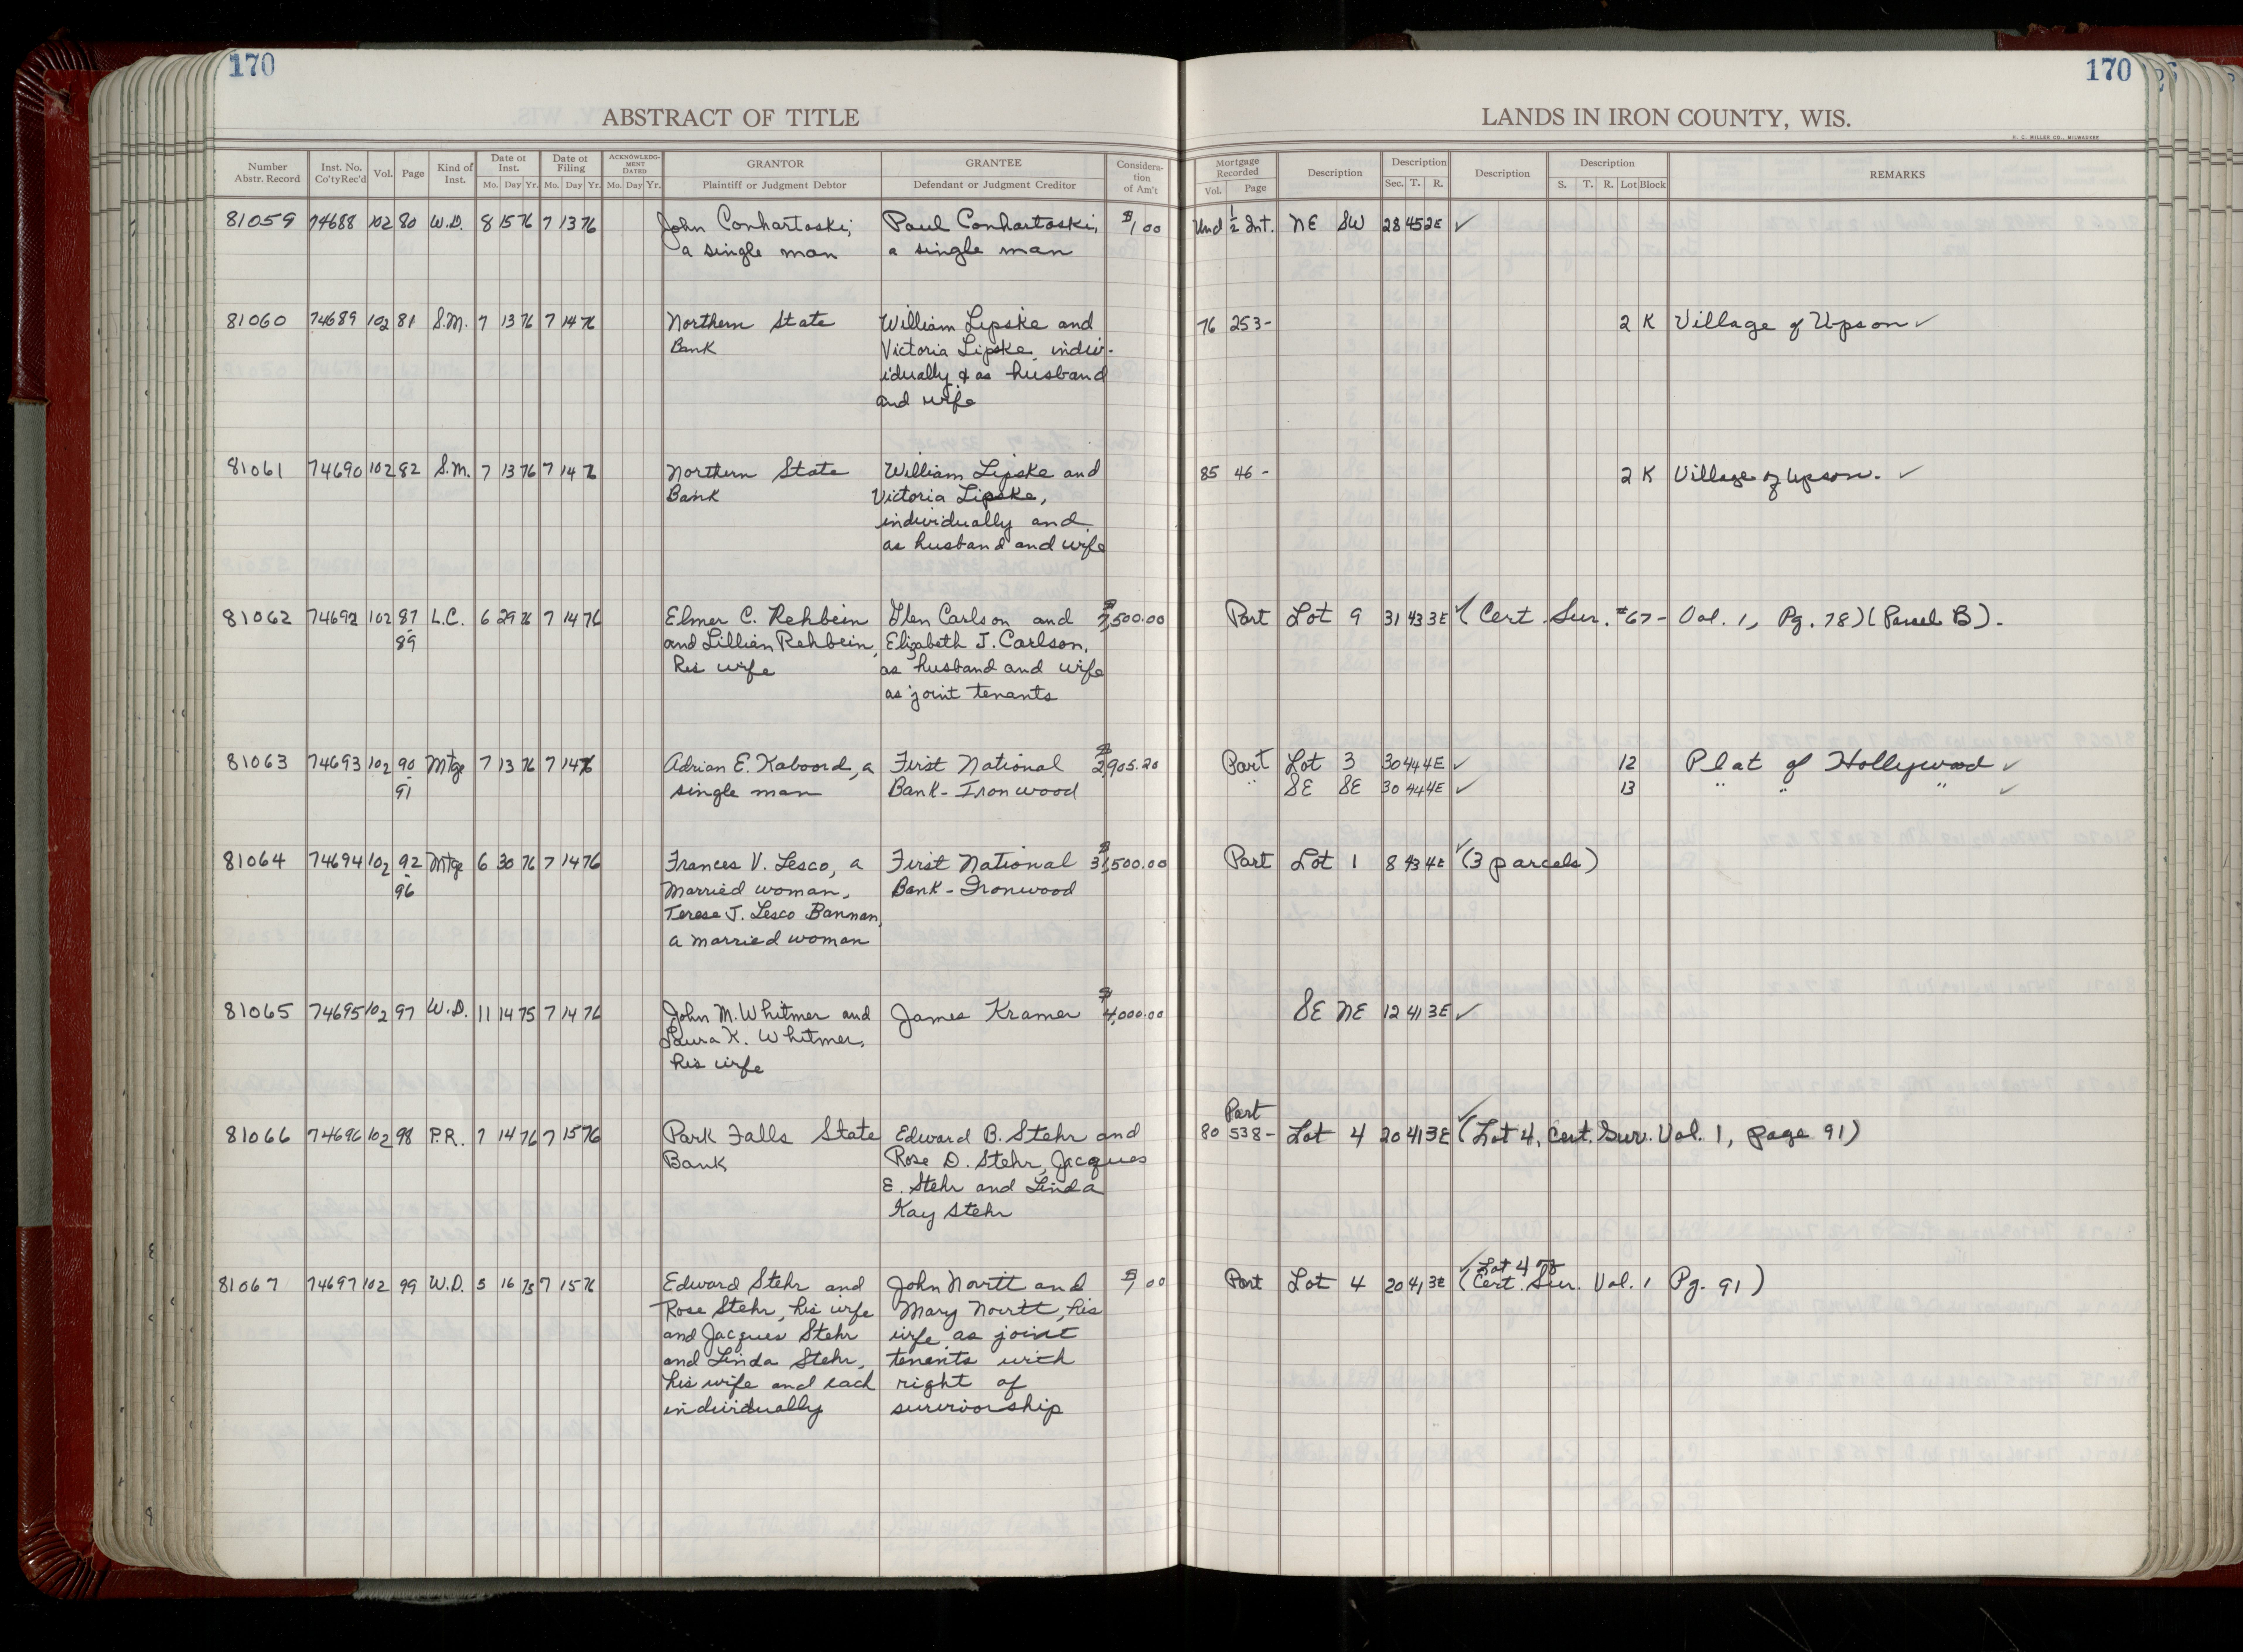 170
170
ABSTRACT OF TITLE
LANDS IN IRON COUNTY, WIS.
H. C. MILLER CO., MILWAUKEE
Number Abstr. Record | Inst. No. Co'ty Rec'd | Vol. | Page | Kind of Inst. | Date of Inst. Mo. Day Yr. | Date of Filing Mo. Day Yr. | ACKNOWLEDGMENT DATED Mo. Day Yr. | GRANTOR Plaintiff or Judgment Debtor | GRANTEE Defendant or Judgment Creditor | Consideration of Am't | Mortgage Recorded Vol. Page | Description | Description Sec. T. R. | Description | Description S. T. R. Lot Block | REMARKS
81059 74688 102 80 W.D. 8 15 76 7 13 76 John Conhartoski, Paul Conhartoski, $1 00 Und 1/2 Int. NE SW 28 45 2E ✓
a single man a single man
81060 74689 102 81 S.M. 7 13 76 7 14 76 Northern State William Lipske and 76 253- 2 K Village of Upson ✓
Bank Victoria Lipske, indiv-
idually & as husband
and wife
81061 74690 102 82 S.M. 7 13 76 7 14 76 Northern State William Lipske and 85 46- 2 K Village of Upson. ✓
Bank Victoria Lipske,
individually and
as husband and wife
81062 74692 102 87 L.C. 6 29 76 7 14 76 Elmer C. Rehbein Glen Carlson and $7,500.00 Part Lot 9 31 43 3E ✓ (Cert. Sur. #67- Vol. 1, Pg. 78) (Parcel B).
-89 and Lillian Rehbein, Elizabeth J. Carlson,
his wife as husband and wife
as joint tenants
81063 74693 102 90 Mtge 7 13 76 7 14 76 Adrian E. Kaboord, a First National $2,905.20 Part Lot 3 30 44 4E ✓ 12 Plat of Hollywood ✓
-91 single man Bank-Ironwood " SE SE 30 44 4E ✓ 13 " " " ✓
81064 74694 102 92 Mtge 6 30 76 7 14 76 Frances V. Lesco, a First National $31,500.00 Part Lot 1 8 43 4E ✓ (3 parcels)
-96 married woman, Bank-Ironwood
Terese J. Lesco Bannan,
a married woman
81065 74695 102 97 W.D. 11 14 75 7 14 76 John M. Whitmer and James Kramer $4,000.00 SE NE 12 41 3E ✓
Laura K. Whitmer,
his wife
Part
81066 74696 102 98 P.R. 7 14 76 7 15 76 Park Falls State Edward B. Stehr and 80 538- Lot 4 20 41 3E ✓ (Lot 4, Cert. Surv. Vol. 1, page 91)
Bank Rose D. Stehr, Jacques
E. Stehr and Linda
Kay Stehr
✓ Lot 4 of
81067 74697 102 99 W.D. 5 16 75 7 15 76 Edward Stehr and John Novitt and $1 00 Part Lot 4 20 41 3E (Cert. Sur. Vol. 1 Pg. 91)
Rose Stehr, his wife Mary Novitt, his
and Jacques Stehr wife, as joint
and Linda Stehr, tenants with
his wife and each right of
individually survivorship